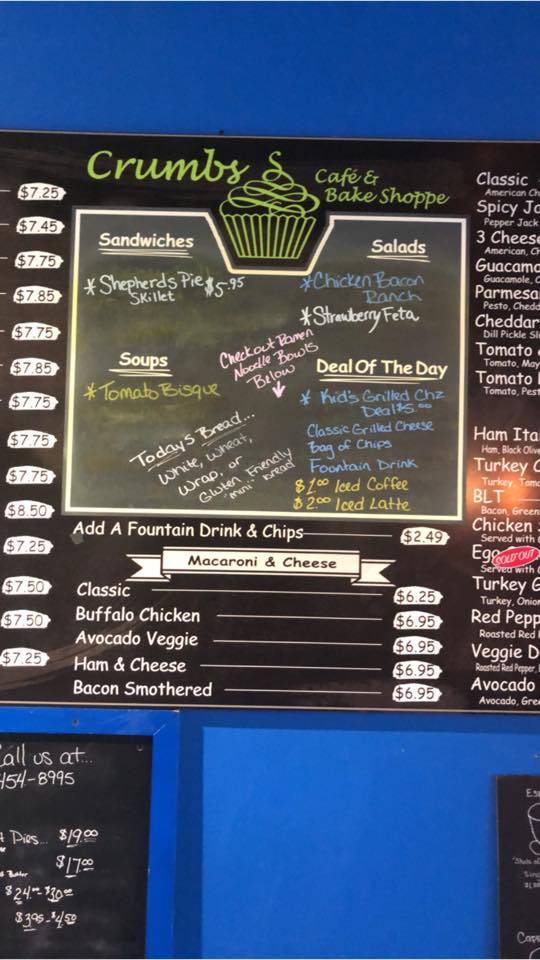 Crumbs
Café &
Bake Shoppe
$7.25
$7.45
$7.75
$7.85
$7.75
$7.85
$7.75
$7.75
$7.75
$8.50
$7.25
$7.50
$7.50
$7.25
Sandwiches
* Shepherds Pie $5.95
Skillet
Soups
* Tomato Bisque
Checkout Ramen
Noodle Bowls
Below
Today's Bread...
White, Wheat,
Wrap, or
Gluten Friendly
"mini" bread
Salads
* Chicken Bacon
Ranch
* Strawberry Feta
Deal Of The Day
* Kid's Grilled Chz
Deal $5.00
Classic Grilled Cheese
Bag of Chips
Fountain Drink
$1.00 Iced Coffee
$2.00 Iced Latte
Add A Fountain Drink & Chips $2.49
Macaroni & Cheese
Classic $6.25
Buffalo Chicken $6.95
Avocado Veggie $6.95
Ham & Cheese $6.95
Bacon Smothered $6.95
Classic
American Ch
Spicy Ja
Pepper Jack
3 Cheese
American, Ch
Guacamo
Guacamole, C
Parmesa
Pesto, Chedd
Cheddar
Dill Pickle Sli
Tomato
Tomato, May
Tomato
Tomato, Pest
Ham Ita
Ham, Black Olive
Turkey C
Turkey, Toma
BLT
Bacon, Green
Chicken
Served with
Egg SOLD OUT
Served with
Turkey G
Turkey, Onion
Red Pepp
Roasted Red
Veggie D
Roasted Red Pepper,
Avocado
Avocado, Gree
Call us at...
454-8995
Pies... $19.00
$17.00
$24.00-$30.00
$3.95-$4.50
Es